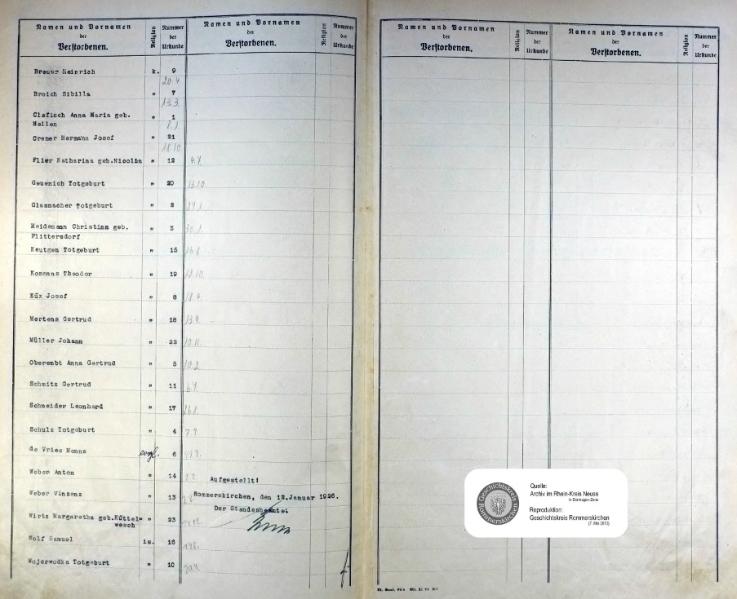 Namen und Vornamen
der
Verstorbenen.
Religion
Nummer
der
Urkunde
Namen und Vornamen
der
Verstorbenen.
Religion
Nummer
der
Urkunde
Brewer Heinrich k. 9
20.4.
Broich Sibilla " 7
13.3.
Clafisch Anna Maria geb. " 1
Cremer Hermann Josef " 21
Flier Katharina geb. " 12
Geuenich Totgeburt " 20
Glasmacher Totgeburt " 2
Heidemann Christina geb. " 3
Flittersdorf
Keutgen Totgeburt " 15
Kommans Theodor " 19
Küx Josef " 8
Mertens Gertrud " 18
Müller Johann " 22
Oberembt Anna Gertrud " 5
Schmitz Gertrud " 11
Schneider Leonhard " 17
Schulz Totgeburt " 4
de Vries evgl. 6
Weber Anton " 14
Weber Vinzenz " 13
Wirtz Margaretha geb. " 23
Wolf Samuel is. 16
Wojerwodka Totgeburt " 10
Aufgestellt!
Rommerskirchen, den Januar 1926.
Der Standesbeamte:
Namen und Vornamen
der
Verstorbenen.
Religion
Nummer
der
Urkunde
Namen und Vornamen
der
Verstorbenen.
Religion
Nummer
der
Urkunde
Geschichtskreis
Rommerskirchen
Quelle:
Archiv im Rhein-Kreis Neuss
in Dormagen-Zons
Reproduktion:
Geschichtskreis Rommerskirchen